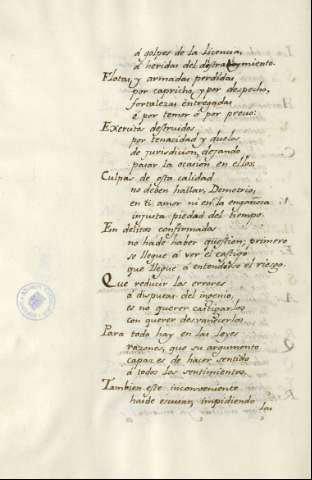 á golpes de la licencia,
á heridas del destraymiento.
Flotas, y armadas perdidas,
por capricho, y por despecho,
fortalezas entregadas
ò por temor ò por precio:
Exercitos destruidos,
por tenacidad y duelos
de jurisdicion, dejando
pasar la ocasion en ellos;
Culpas de esta calidad
no deben hallar, Demetrio,
en ti amor ni en la engañosa
injusta piedad del tiempo.
En delitos confirmados
no hade haber question; primero
se llegue á ver el castigo
que llegue á entenderse el riesgo.
Que reducir los errores
á disputas del ingenio,
es no querer castigarlos
con querer desvanecerlos.
Para todo hay en las leyes
razones, que su argumento
capaz es de hacer sentido
á todos los sentimientos.
Tambien este inconveniente
haide escusar, impidiendo
las